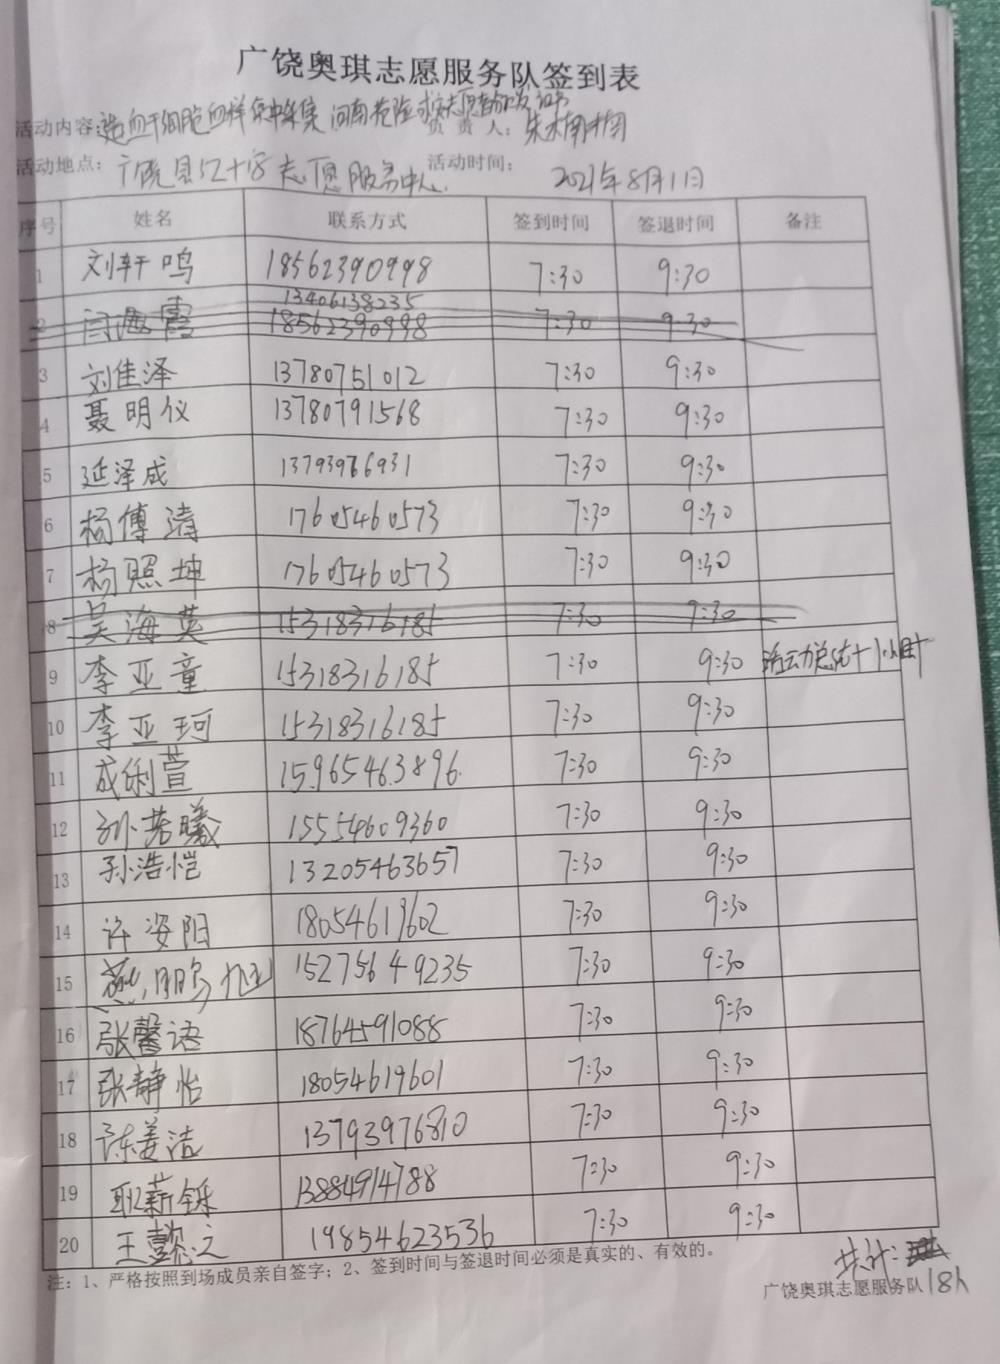 广饶奥琪志愿服务队签到表
活动内容:造血干细胞血样集中采集 河南抢险救灾志愿者颁发证书 负责人:
活动地点:广饶县红十字志愿服务中心 活动时间:2021年8月1日
序号 姓名 联系方式 签到时间 签退时间 备注
1 刘轩鸣 18562390998 7:30 9:30
13406138235
2 闫海霞 18562390998 7:30 9:30
3 刘佳泽 13780751012 7:30 9:30
4 聂明仪 13780791568 7:30 9:30
5 延泽成 13793976931 7:30 9:30
6 杨傅清 17605460573 7:30 9:30
7 杨照坤 17605460573 7:30 9:30
8 吴海英 15318316185 7:30 9:30
9 李亚童 15318316185 7:30 9:30 活动总结+1小时
10 李亚珂 15318316185 7:30 9:30
11 成俐萱 15965463896 7:30 9:30
12 孙若曦 15554609360 7:30 9:30
13 孙浩恺 13205463657 7:30 9:30
14 许姿阳 18054619602 7:30 9:30
15 燕鹏旭 15275649235 7:30 9:30
16 张馨语 18764591088 7:30 9:30
17 张静怡 18054619601 7:30 9:30
18 陈姜洁 13793976810 7:30 9:30
19 耿薪铄 13884914788 7:30 9:30
20 王懿之 19854623536 7:30 9:30
注:1、严格按照到场成员亲自签字;2、签到时间与签退时间必须是真实的、有效的。
共计:18人
广饶奥琪志愿服务队